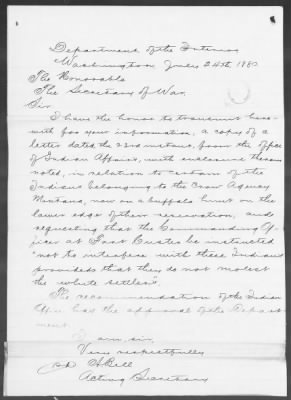 Department of the Interior
Washington July 24th, 1880
The Honorable
The Secretary of War,
Sir:
I have the honor to transmit here-
with for your information, a copy of a
letter dated the 22nd instant, from the office
of Indian Affairs, with enclosure therein
noted, in relation to certain of the
Indians belonging to the Crow Agency
Montana, now on a buffalo hunt on the
lower edge of their reservation, and
requesting that the Commanding Of-
ficer at Fort Custer be instructed
"not to interfere with these Indians
provided that they do not molest
the white settlers".
The recommendation of the Indian
Office has the approval of the Depart-
ment.
I am sir,
Very respectfully
A Bell
Acting Secretary